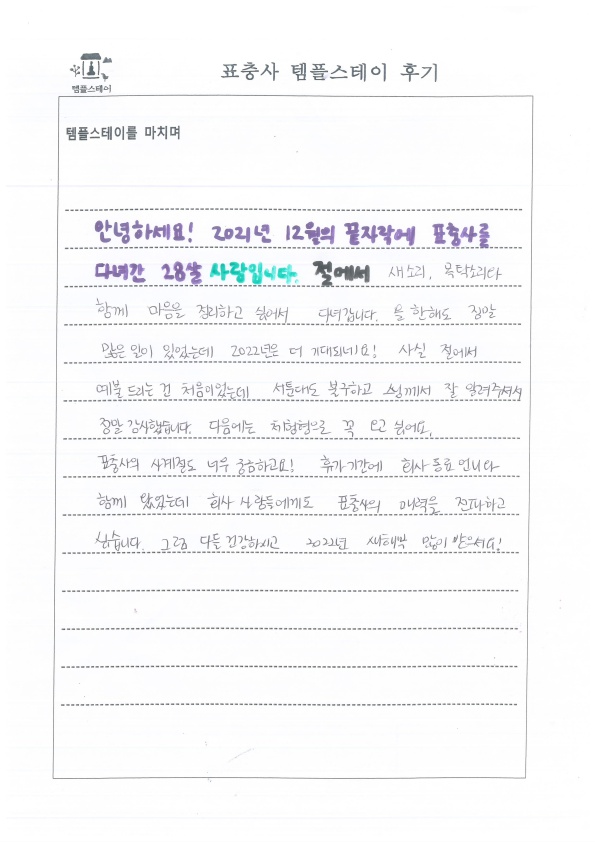 템플스테이
표충사 템플스테이 후기
템플스테이를 마치며
안녕하세요! 2021년 12월의 끝자락에 표충사를
다녀간 28살 사람입니다. 절에서 새소리, 목탁소리와
함께 마음을 정리하고 싶어서 다녀갑니다. 올 한해도 정말
많은 일이 있었는데 2022년은 더 기대되네요! 사실 절에서
예불 드리는 건 처음이었는데 서툰데도 불구하고 스님께서 잘 알려주셔서
정말 감사했습니다. 다음에는 체험형으로 꼭 오고 싶어요.
표충사의 사계절도 너무 궁금하고요! 휴가기간에 회사 동료 언니와
함께 왔었는데 회사 사람들에게도 표충사의 매력을 전파하고
싶습니다. 그럼 다들 건강하시고 2022년 새해복 많이 받으세요!